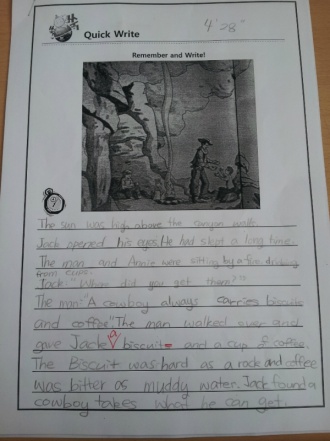 4'28"
Quick Write
Remember and Write!
The sun was high above the canyon walls.
Jack opened his eyes. He had slept a long time.
The man and Annie were sitting by a fire drinking
from
Jack: "Where did you get them?"
The man: "A cowboy always carries biscuits
and coffee" The man walked over and
gave Jack a biscuit and a cup of coffee.
The Biscuit was hard as a rock and coffee
was bitter as muddy water. Jack found a
cowboy takes what he can get.